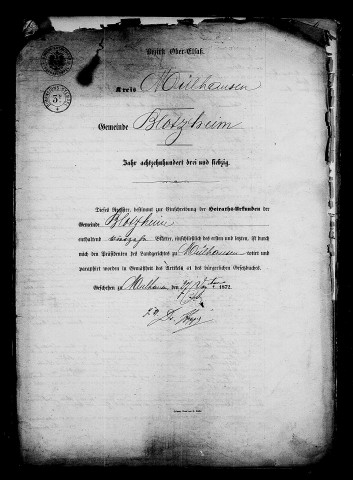 Bezirk Ober-Elsaß.
Kreis Mülhausen
Gemeinde Blotzheim
Jahr achtzehnhundert drei und siebzig.
Dieses Register, bestimmt zur Einschreibung der Heiraths-Urkunden der
Gemeinde Blotzheim
enthaltend Blätter, einschließlich des ersten und letzten, ist durch
mich den Präsidenten des Landgerichts zu Mülhausen cotirt und
paraphirt worden in Gemäßheit des Artikels 41 des bürgerlichen Gesetzbuches.
Geschehen zu Mülhausen den 1872.